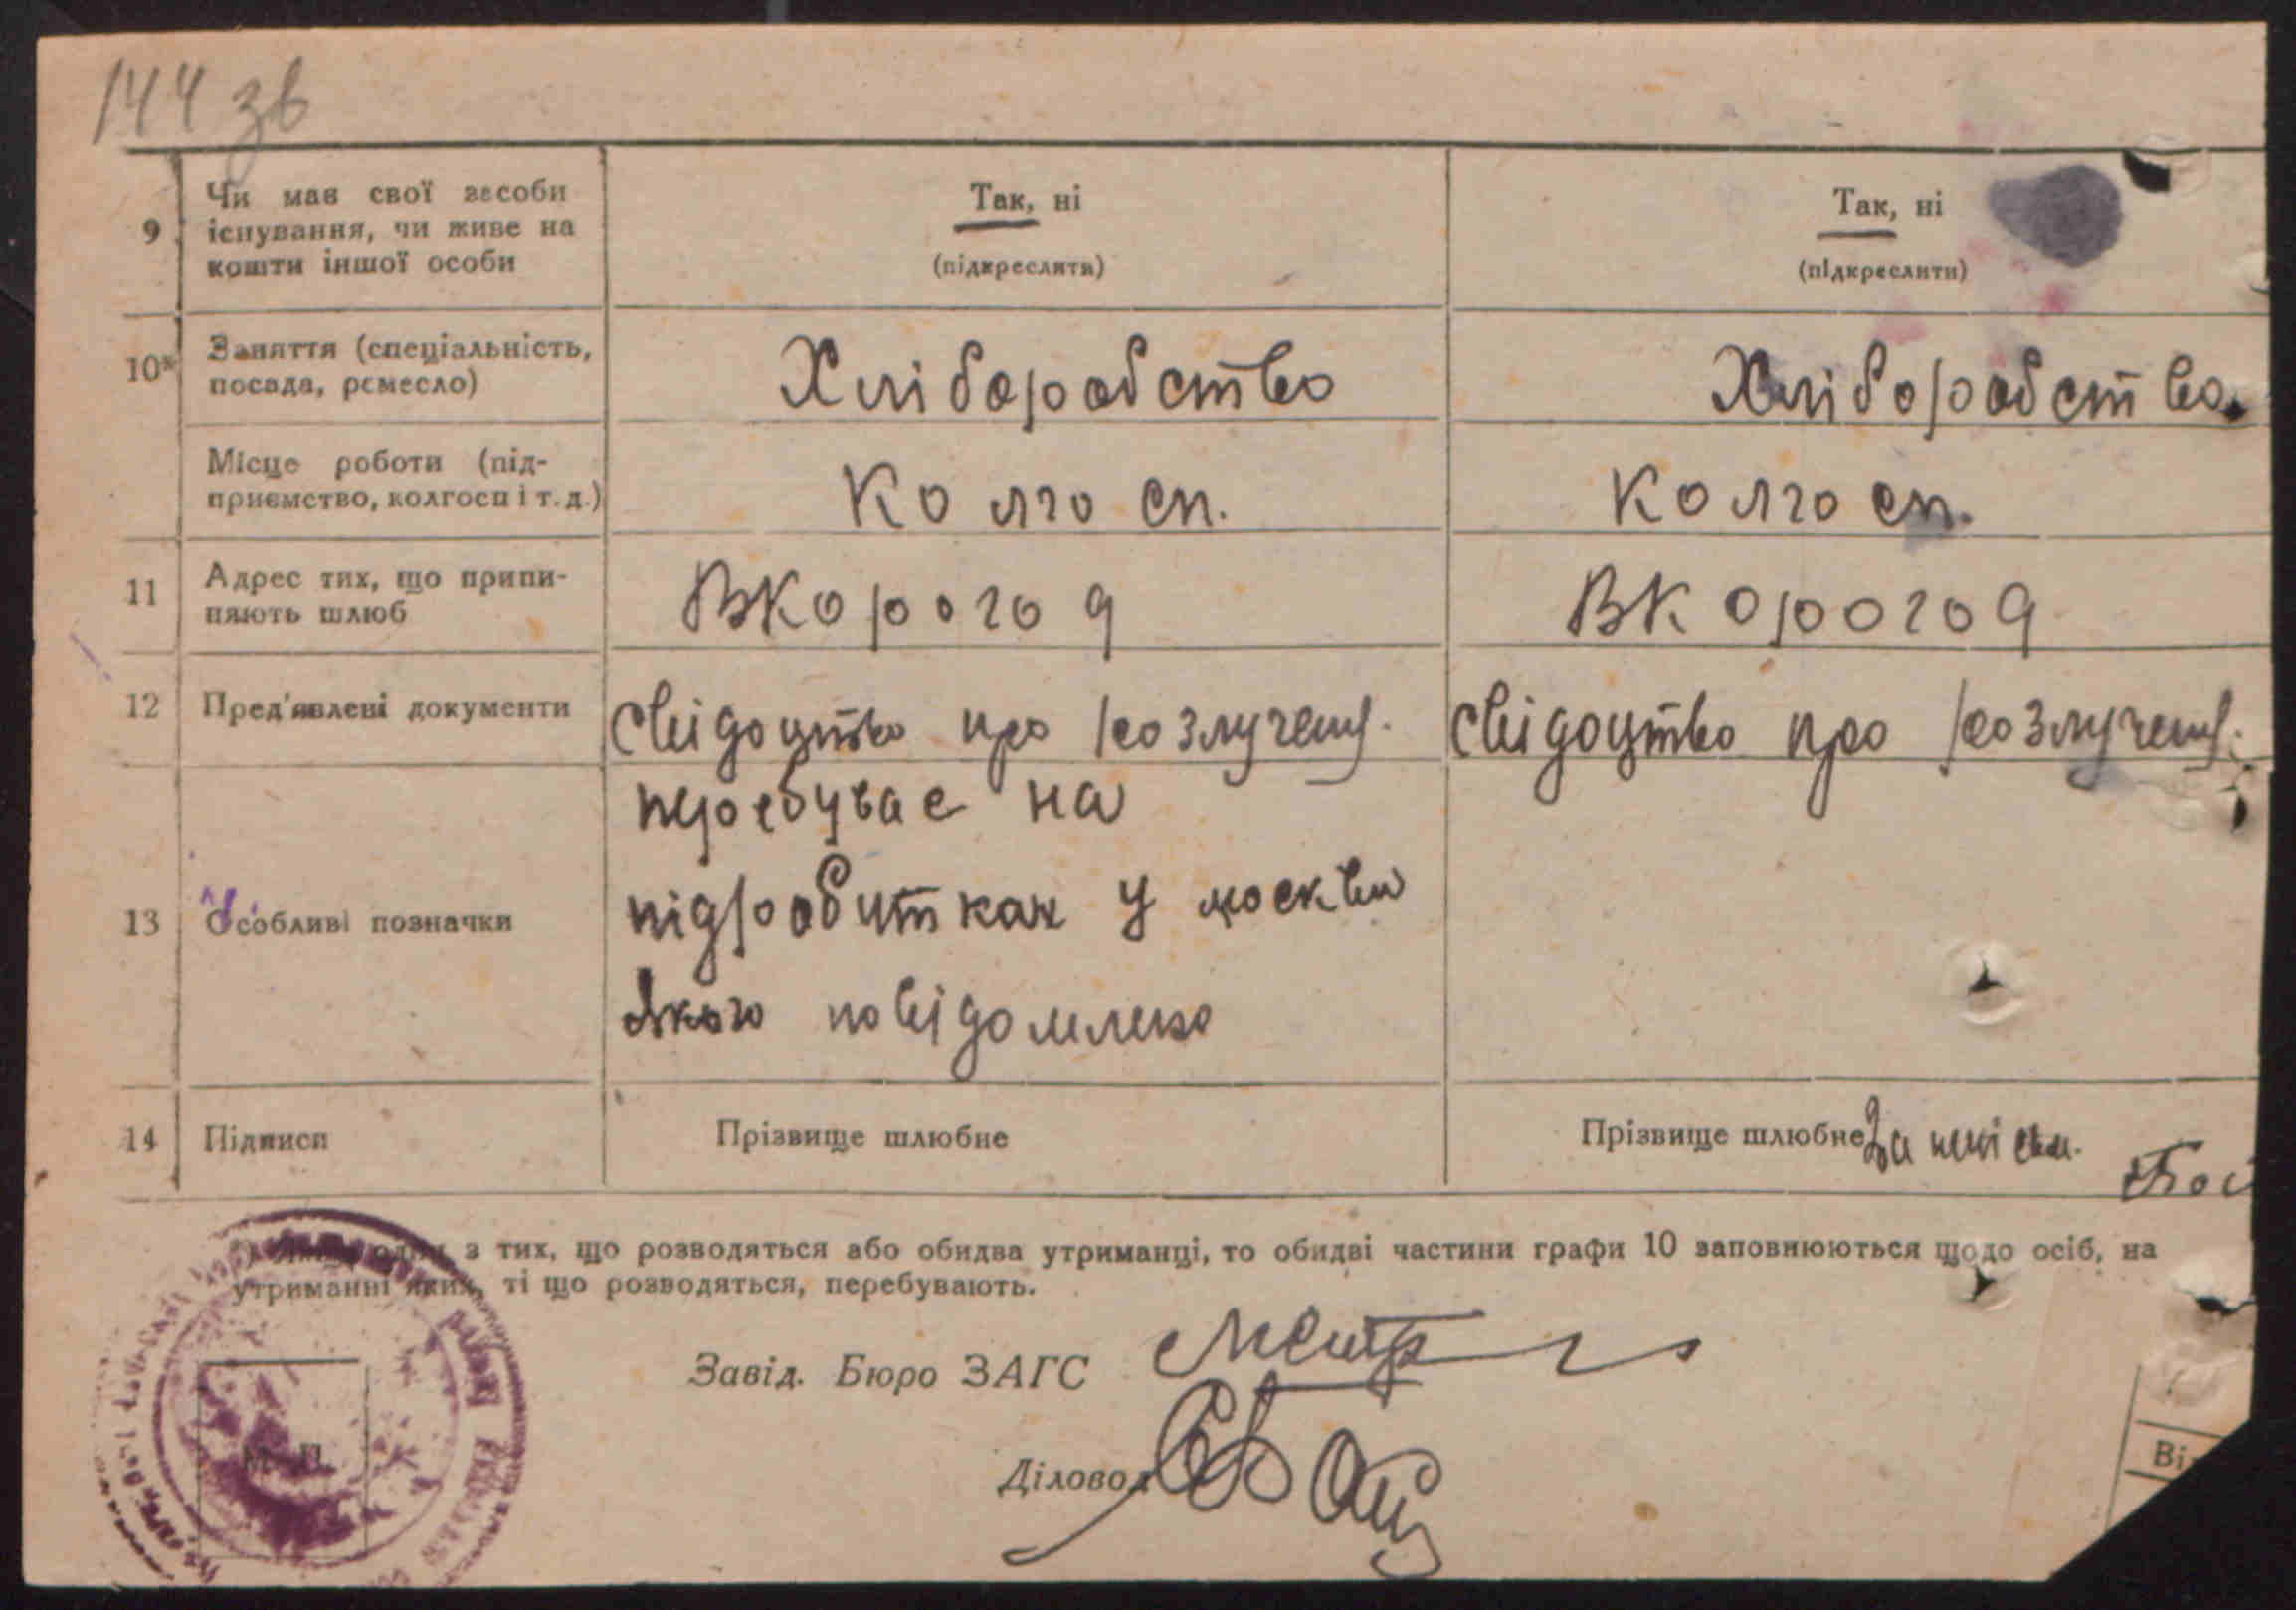 144 зв
9 Чи має свої засоби існування, чи живе на кошти іншої особи
Так, ні
(підкреслити)
Так, ні
(підкреслити)
10* Заняття (спеціальність, посада, ремесло)
Хліборобство
Хліборобство
Місце роботи (підприємство, колгосп і т. д.)
Колгосп.
Колгосп.
11 Адрес тих, що припиняють шлюб
Вкорогод
Вкорогод
12 Пред'явлені документи
свідоцтво про розлучен.
свідоцтво про розлучен.
13 Особливі позначки
перебуває на
підробітках у москви
якого повідомлено
14 Підписи
Прізвище шлюбне
Прізвище шлюбне
з тих, що розводяться або обидва утриманці, то обидві частини графи 10 заповнюються щодо осіб, на
утриманні яких, ті що розводяться, перебувають.
Завід. Бюро ЗАГС
Діловод
М. П.